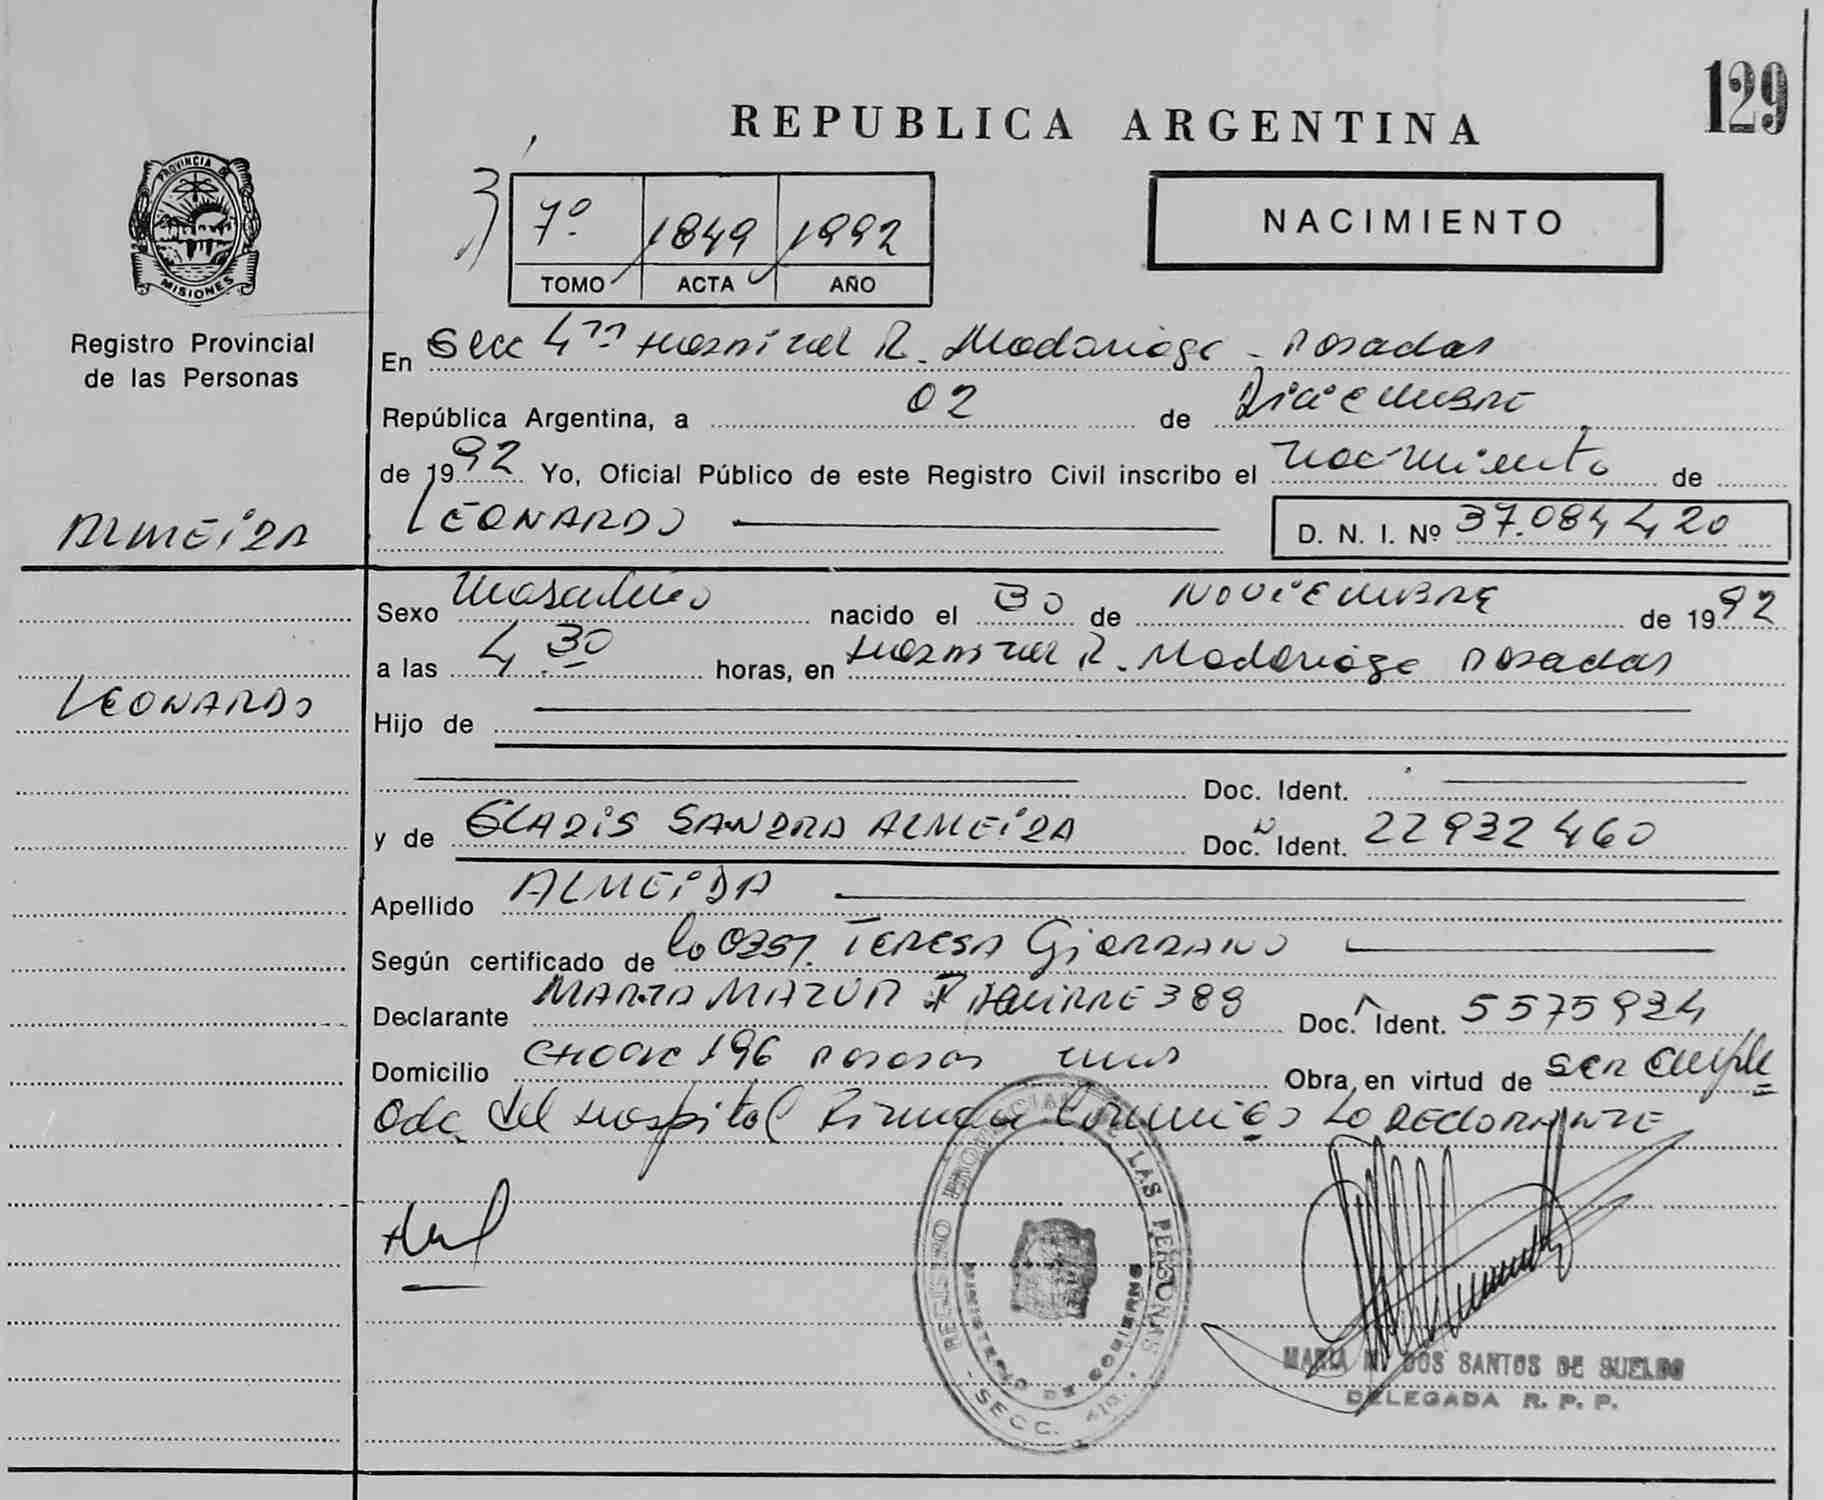 129
REPUBLICA ARGENTINA
PROVINCIA DE
MISIONES
Registro Provincial
de las Personas
7º 1849 1992
TOMO ACTA AÑO
NACIMIENTO
En Secc 4ta Hospital R. Madariaga - Posadas
República Argentina, a 02 de Diciembre
de 1992 Yo, Oficial Público de este Registro Civil inscribo el nacimiento de
ALMEIDA
LEONARDO
D. N. I. Nº 37.084420
Sexo Masculino nacido el 30 de NOVIEMBRE de 1992
a las 4.30 horas, en Hospital R. Madariaga Posadas
LEONARDO
Hijo de
Doc. Ident.
y de GLADIS SANDRA ALMEIDA Doc. Ident. 22932460
Apellido ALMEIDA
Según certificado de TERESA GIORDANO
Declarante MARTA MAZUR AGUIRRE 388 Doc. Ident. 5575934
Domicilio 196 Posadas Obra, en virtud de ser emple
ada del Hospital Firmada Conmigo La DECLARANTE
REGISTRO PROVINCIAL DE LAS PERSONAS
MINISTERIO DE GOBIERNO
SECC. 4ta.
MARIA DOS SANTOS DE SUELDO
DELEGADA R. P. P.